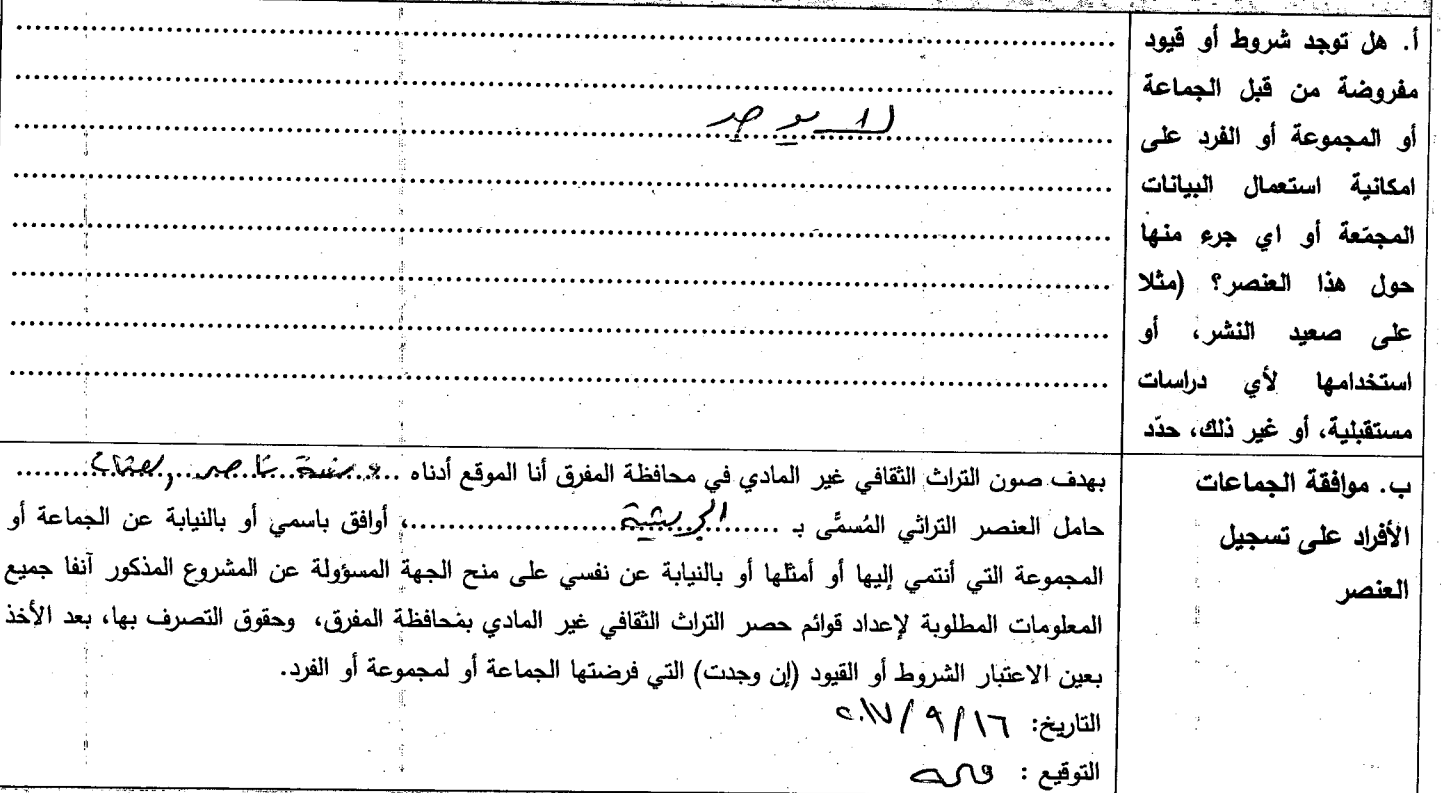 أ. هل توجد شروط أو قيود
مفروضة من قبل الجماعة
أو المجموعة أو الفرد على
امكانية استعمال البيانات
المجمّعة أو اي جرء منها
حول هذا العنصر؟ (مثلا
على صعيد النشر، أو
استخدامها لأي دراسات
مستقبلية، أو غير ذلك، حدّد
لا يوجد
ب. موافقة الجماعات
الأفراد على تسجيل
العنصر
بهدف صون التراث الثقافي غير المادي في محافظة المفرق أنا الموقع أدناه
حامل العنصر التراثي المُسمَّى بـ ........................، أوافق باسمي أو بالنيابة عن الجماعة أو
المجموعة التي أنتمي إليها أو أمثلها أو بالنيابة عن نفسي على منح الجهة المسؤولة عن المشروع المذكور آنفا جميع
المعلومات المطلوبة لإعداد قوائم حصر التراث الثقافي غير المادي بمحافظة المفرق، وحقوق التصرف بها، بعد الأخذ
بعين الاعتبار الشروط أو القيود (إن وجدت) التي فرضتها الجماعة أو لمجموعة أو الفرد.
التاريخ: ١٦/ ٩ /٢٠١٧
التوقيع :